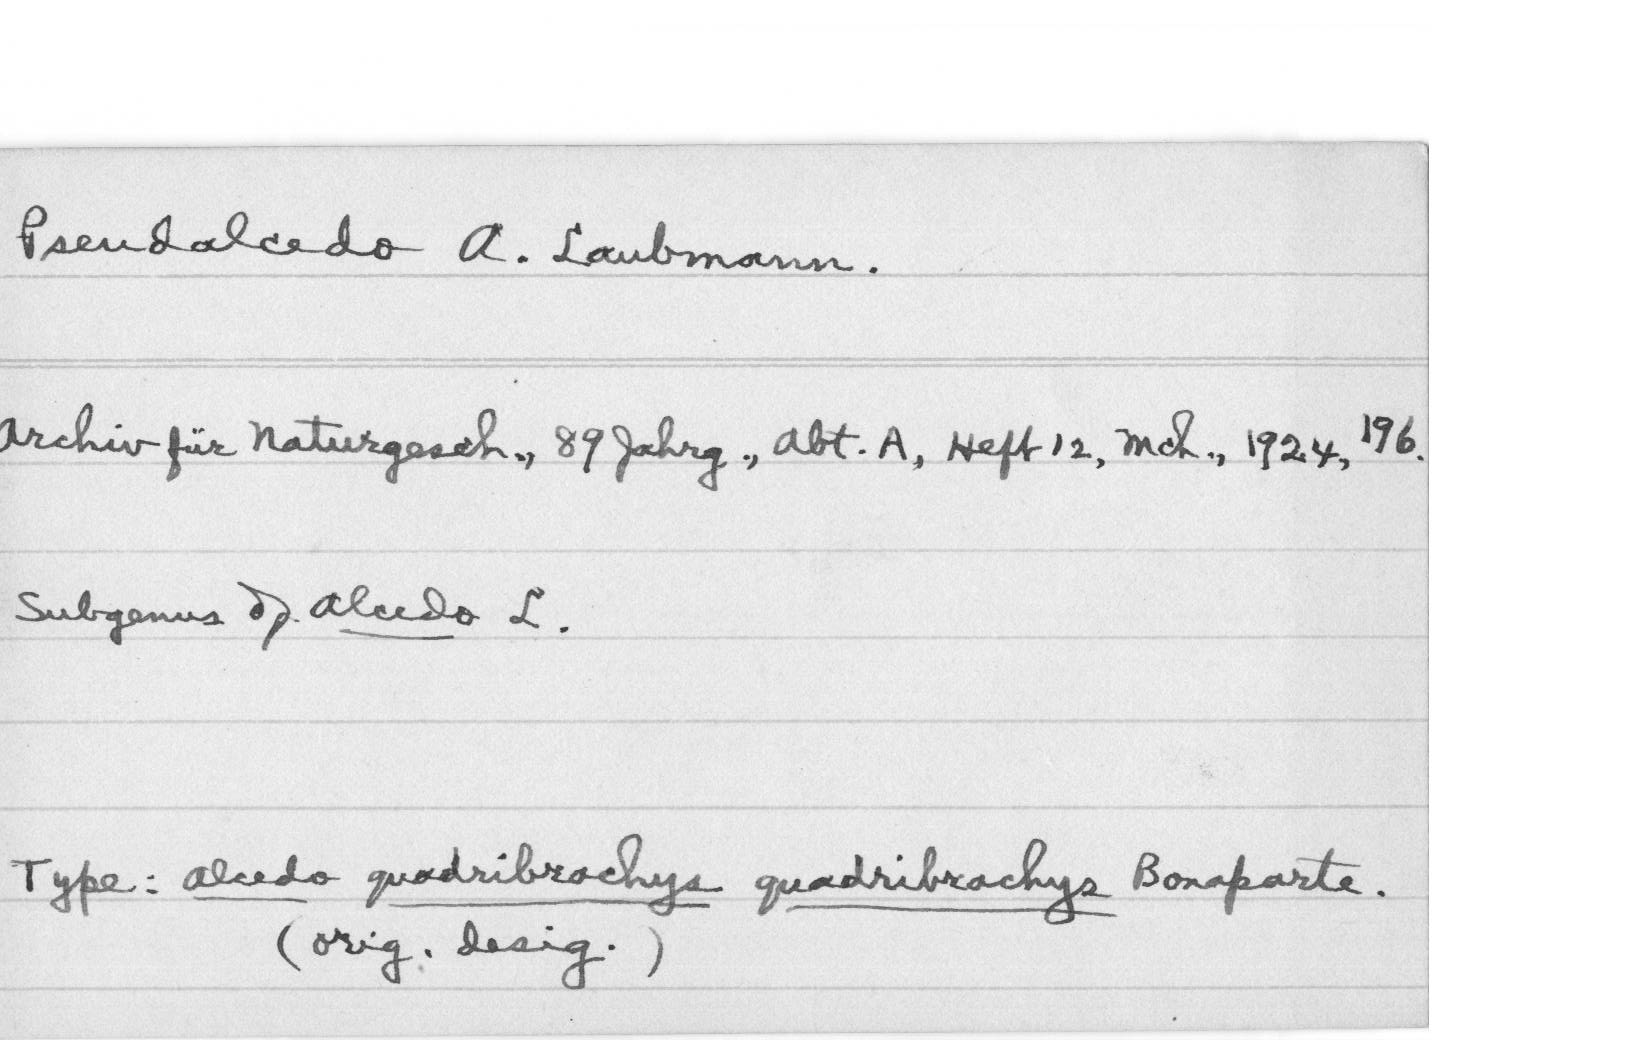 Pseudalcedo A. Laubmann.
Archiv für Naturgesch., 89 Jahrg., Abt. A, Heft 12, Mch., 1924, 196.
Subgenus of Alcedo L.
Type: Alcedo quadribrachys quadribrachys Bonaparte.
(orig. desig.)